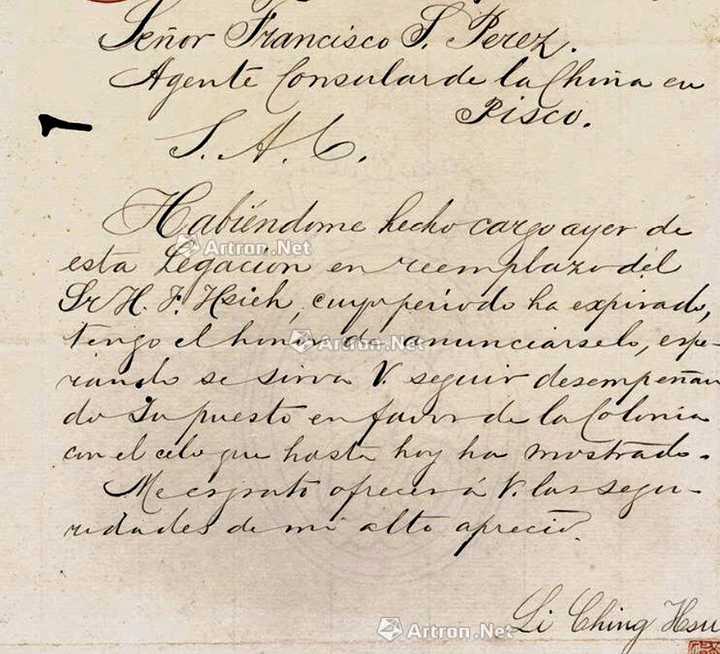 Señor Francisco S. Perez.
Agente Consular de la China en
Pisco.
S. A. C.
Habiéndome hecho cargo ayer de
esta Legación en reemplazo del
Sr H. F. Hsieh, cuyo período ha expirado,
tengo el honor de anunciarselo, espe-
rando se sirva V. seguir desempeñan
do su puesto en favor de la Colonia
con el celo que hasta hoy ha mostrado.
Me es grato ofrecer á V. las segu-
ridades de mi alto aprecio.
Li Ching Hsu
Artron.Net
Artron.Net
Artron.Net